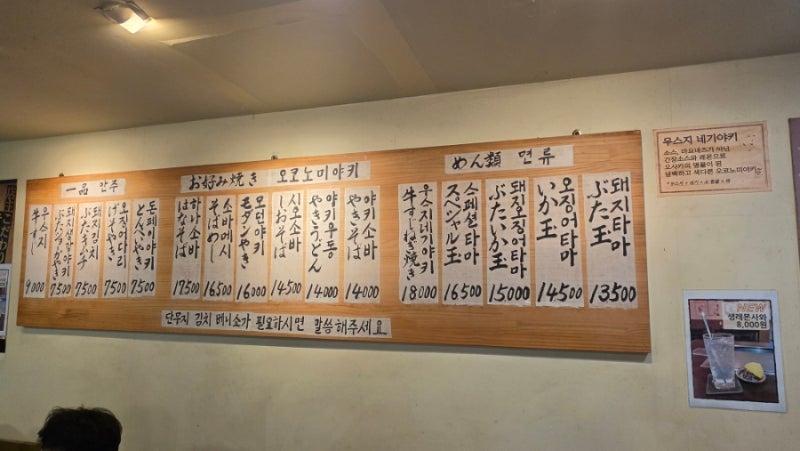 一品 안주
お好み焼き 오코노미야키
めん類 면류
우스지
牛すじ
9000
돼지생강야키
7500
돼지김치
7500
오징어다리
げそやき
7500
돈페이야키
とんぺいやき
7500
하나소바
はなそば
17500
소바메시
そばめし
16500
모던야키
モダンやき
16000
시오소바
しおそば
14500
야키우동
やきうどん
14000
야키소바
やきそば
14000
우스지네기야키
牛すじねぎ焼き
18000
스페셜타마
スペシャル玉
16500
돼지오징어타마
ぶたいか玉
15000
오징어타마
いか玉
14500
돼지타마
ぶた玉
13500
단무지 김치 베니쇼가 필요하시면 말씀해주세요
우스지 네기야키
소스, 마요네즈가 아닌
간장소스와 레몬으로
오사카의 명물이 된
담백하고 색다른 오코노미야키
NEW
생레몬사와
8,000원